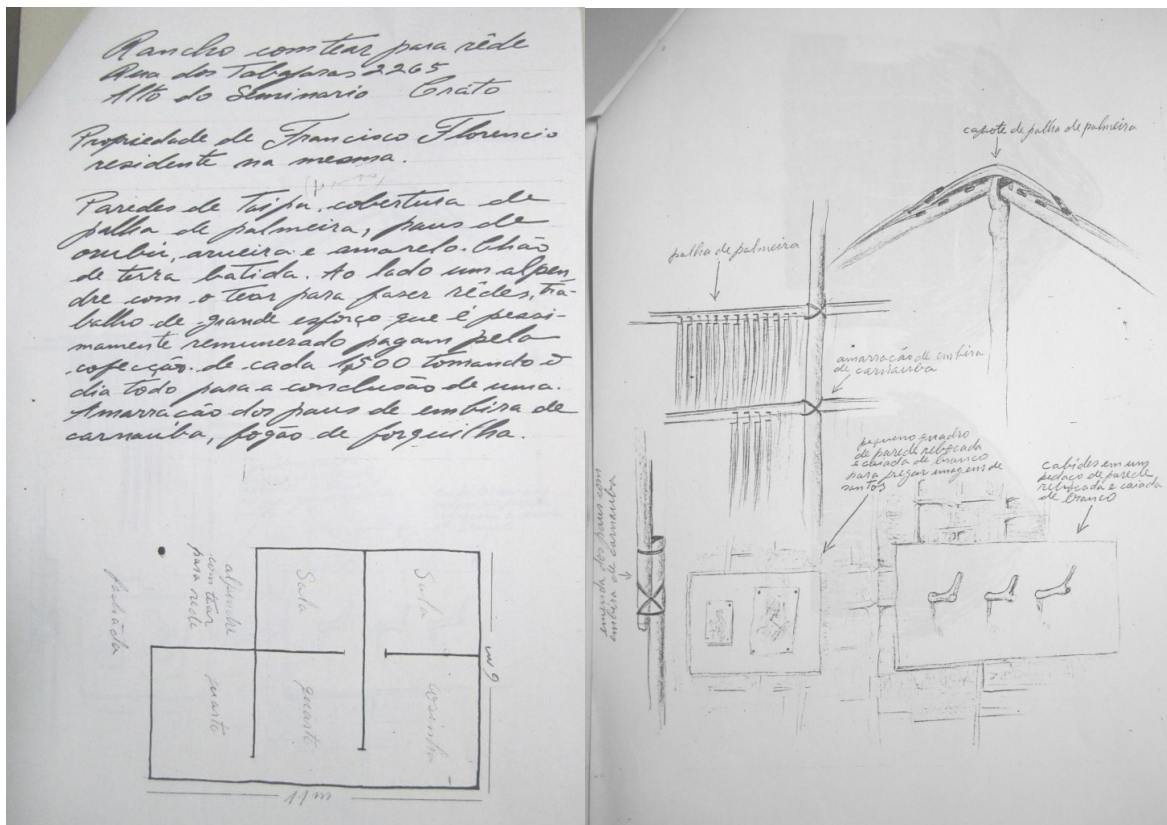 Rancho com tear para rêde
Rua dos Tabajaras 2265
Alto do Seminario Crato
Propriedade de Francisco Florencio
residente na mesma.
Paredes de Taipa, cobertura de
palha de palmeira, paus de
, arueira e amarelo. Chão
de terra batida. Ao lado um alpen
dre com o tear para faser rêdes, tra-
balho de grande esforço que é pessi-
mamente remunerado pagam pela
cofecção de cada 1,500 tomando o
dia todo para a conclusão de uma.
Amarração dos paus de embira de
carnaúba, fogão de forquilha.
fachada
alpendre
com tear
para rede
Sala
Sala
quarto
quarto
cosinha
6 m
11 m
capote de palha de palmeira
palha de palmeira
amarração de embira
de carnauba
pequeno quadro
de parede rebocada
e caiada de branco
para pregar imagens de
santos
cabides em um
pedaço de parede
rebocada e caiada
de branco
emenda dos paus com
embira de carnauba